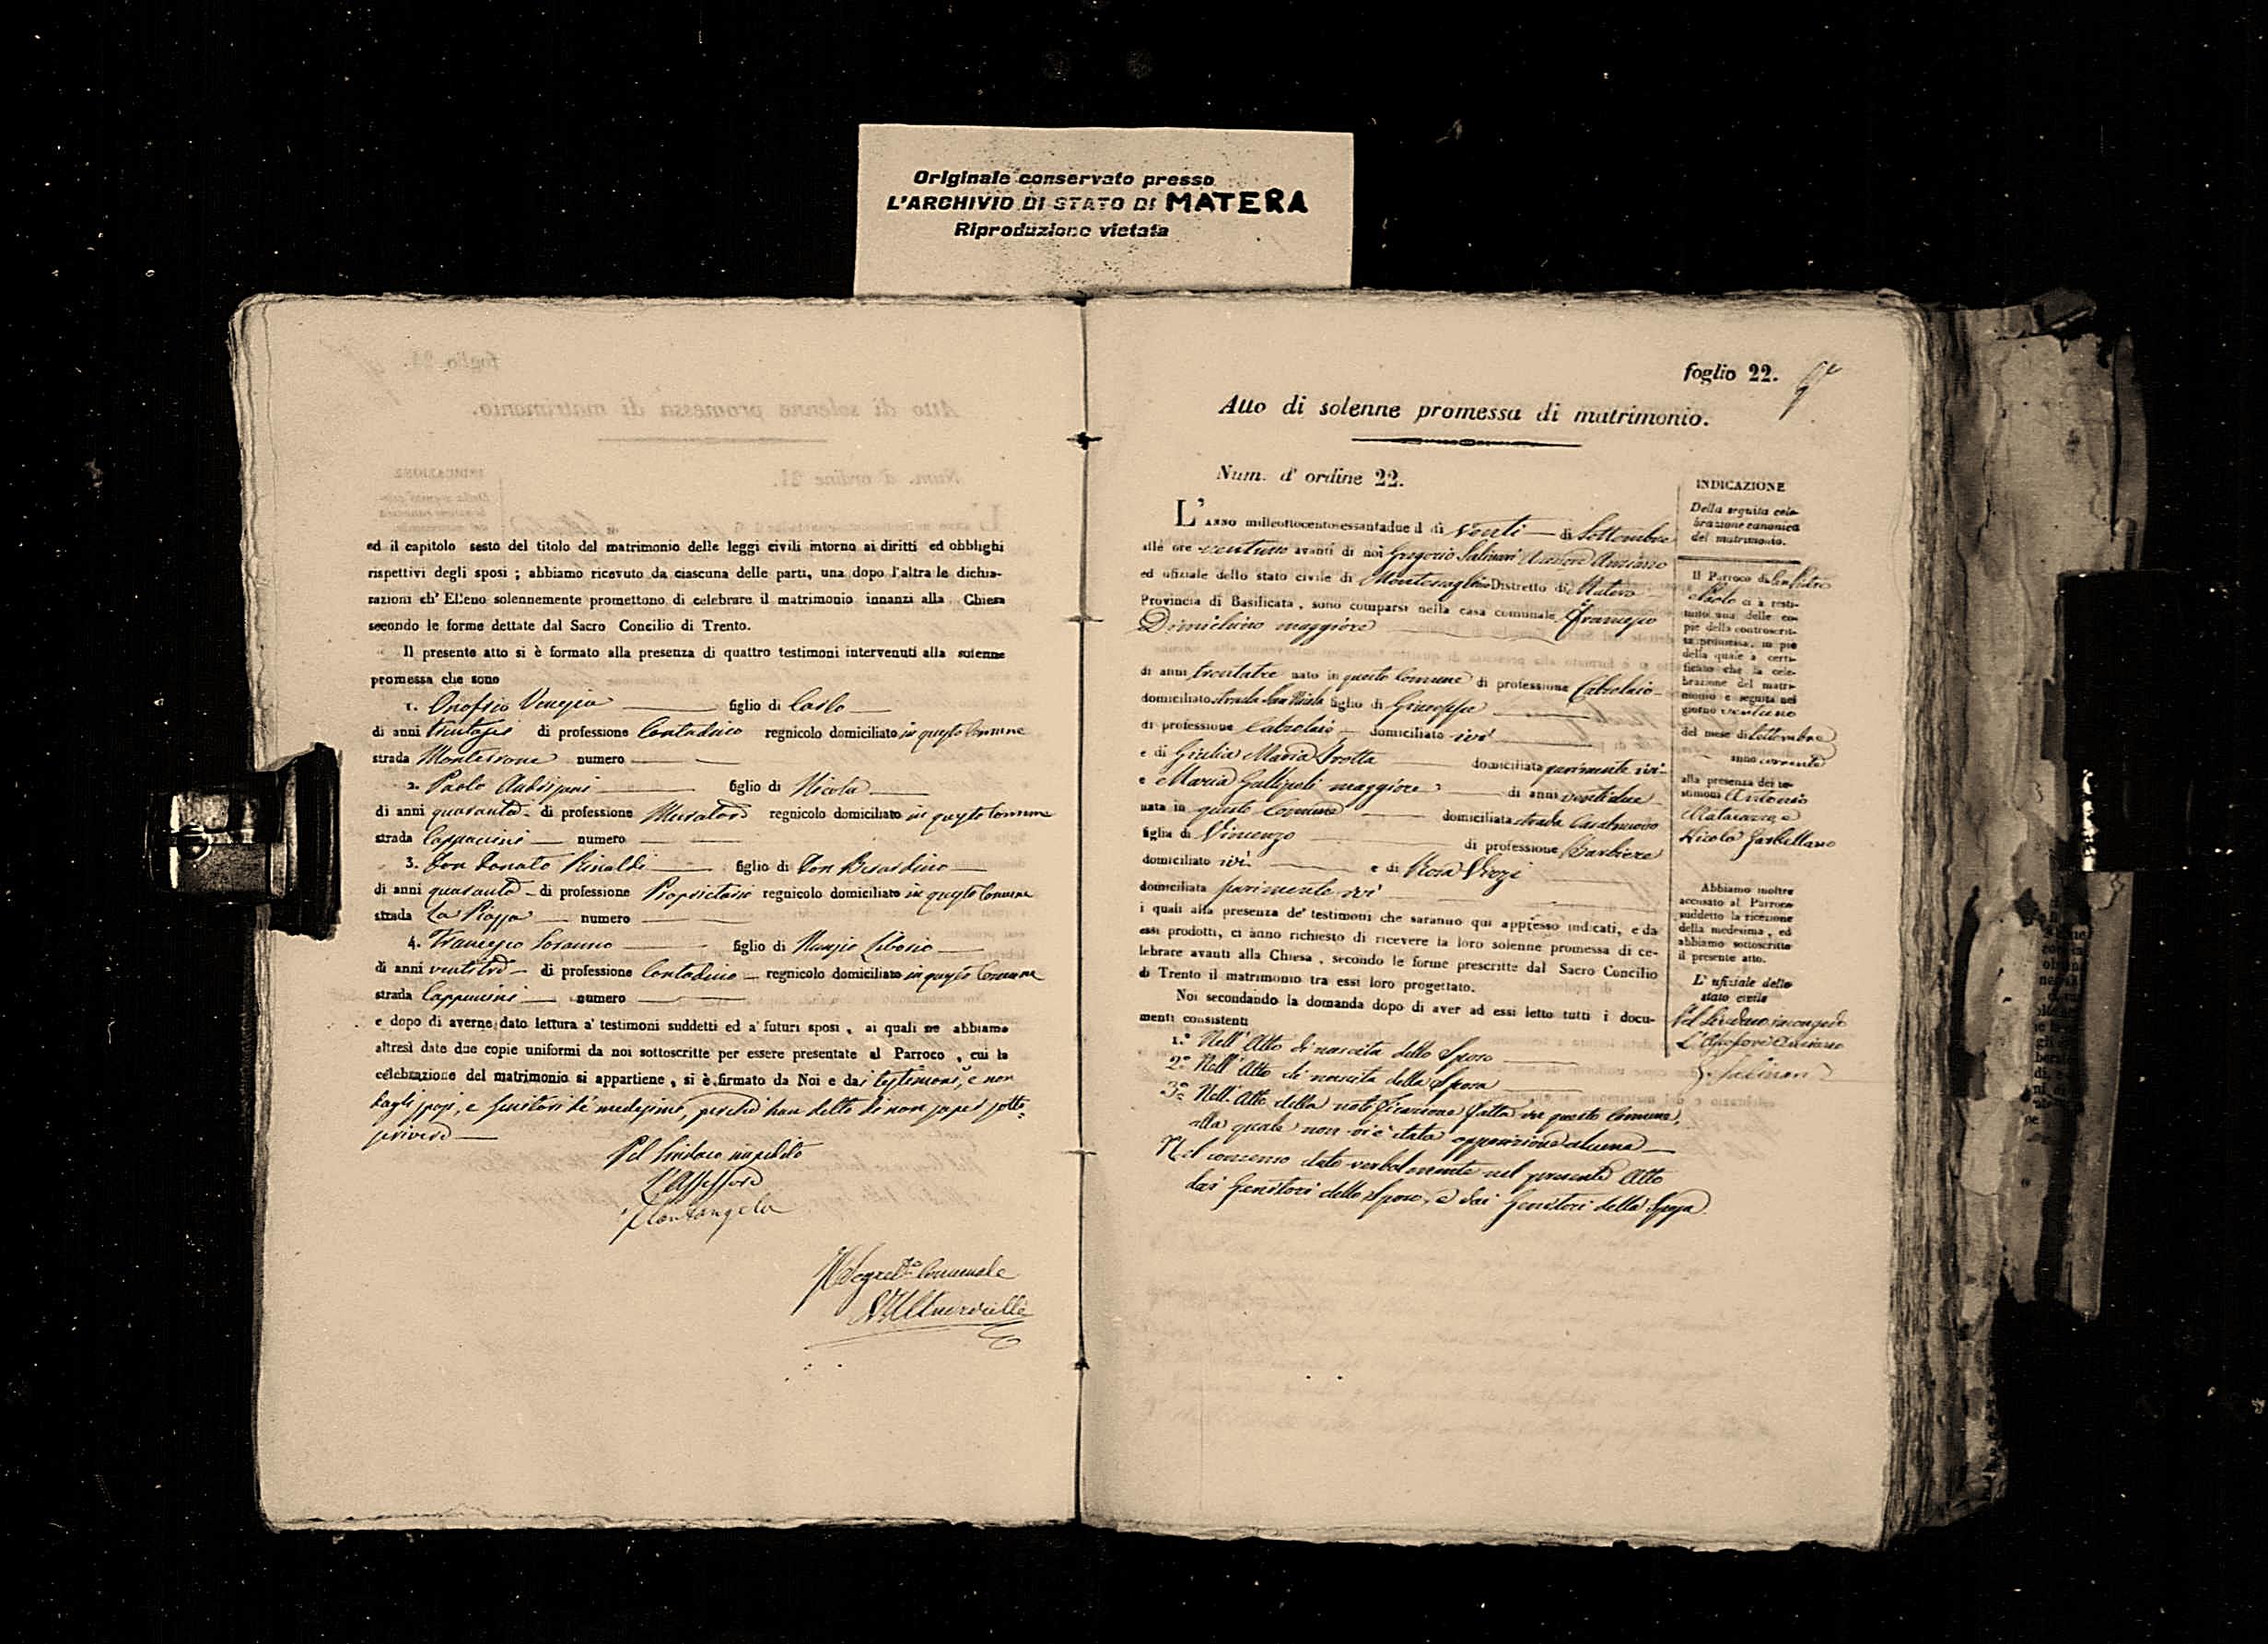 Originale conservato presso
L'ARCHIVIO DI STATO DI MATERA
Riproduzione vietata
ed il capitolo sesto del titolo del matrimonio delle leggi civili intorno ai diritti ed obblighi
rispettivi degli sposi ; abbiamo ricevuto da ciascuna delle parti, una dopo l'altra le dichia-
razioni ch' Elleno solennemente promettono di celebrare il matrimonio innanzi alla Chiesa
secondo le forme dettate dal Sacro Concilio di Trento.
Il presente atto si è formato alla presenza di quattro testimoni intervenuti alla solenne
promessa che sono
1. Onofrio Venezia figlio di Carlo
di anni trentasei di professione Contadino regnicolo domiciliato in questo Comune
strada Montescone numero
2. Paolo figlio di Nicola
di anni quaranta di professione Muratore regnicolo domiciliato in questo Comune
strada Cappuccini numero
3. Don Donato Rinaldi figlio di Don Berardino
di anni quaranta di professione Proprietario regnicolo domiciliato in questo Comune
strada La Piazza numero
4. Francesco figlio di Nunzio Liborio
di anni ventitre di professione Contadino regnicolo domiciliato in questo Comune
strada Cappuccini numero
e dopo di averne dato lettura a' testimoni suddetti ed a' futuri sposi , ai quali ne abbiamo
altresì dato due copie uniformi da noi sottoscritte per essere presentate al Parroco , cui la
celebrazione del matrimonio si appartiene , si è firmato da Noi e dai testimoni, e non
dagli sposi, e genitori de' medesimi, perchè han detto di non saper sotto-
scrivere
Pel Sindaco impedito
L'Assessore
Montangelo
Il Segret.io Comunale
foglio 22.
Atto di solenne promessa di matrimonio.
Num. d' ordine 22.
L'anno milleottocentosessantadue il dì venti di Settembre
alle ore ventuno avanti di noi Gregorio Salinari Assessore Anziano
ed ufiziale dello stato civile di Montescaglioso Distretto di Matera
Provincia di Basilicata , sono comparsi nella casa comunale Francesco
Dimichino maggiore
di anni trentatre nato in questo Comune di professione Calzolaio
domiciliato strada San Nicola figlio di Giuseppe
di professione Calzolaio domiciliato ivi
e di Giulia Maria Trotta domiciliata parimente ivi
e Maria Gallipoli maggiore di anni ventidue
nata in questo Comune domiciliata strada Casalnuovo
figlia di Vincenzo di professione Barbiere
domiciliato ivi e di Rosa
domiciliata parimente ivi
i quali alla presenza de' testimoni che saranno qui appresso indicati, e da
essi prodotti, ci anno richiesto di ricevere la loro solenne promessa di ce-
lebrare avanti alla Chiesa , secondo le forme prescritte dal Sacro Concilio
di Trento il matrimonio tra essi loro progettato.
Noi secondando la domanda dopo di aver ad essi letto tutti i docu-
menti consistenti
1.° Nell'Atto di nascita dello Sposo
2.° Nell'Atto di nascita della Sposa
3.° Nell'Atto della notificazione fatta in questo Comune,
alla quale non vi è stata opposizione alcuna
Nel consenso dato verbalmente nel presente Atto
dai Genitori dello Sposo, e dai Genitori della Sposa
INDICAZIONE
Della seguita cele-
brazione canonica
del matrimonio.
Il Parroco di San Pietro
Paolo ci à resti-
tuito una delle co-
pie della controscrit-
ta promessa, in piè
della quale à certi-
ficato che la cele-
brazione del matri-
monio è seguita nel
giorno ventuno
del mese di Settembre
anno corrente
alla presenza dei te-
stimoni Antonio
Matarazzo e
Nicola Garbellano
Abbiamo inoltre
accusato al Parroco
suddetto la ricezione
della medesima , ed
abbiamo sottoscritto
il presente atto.
L' ufiziale dello
stato civile
Pel Sindaco in congedo
L'Assessore Anziano
G. Salinari